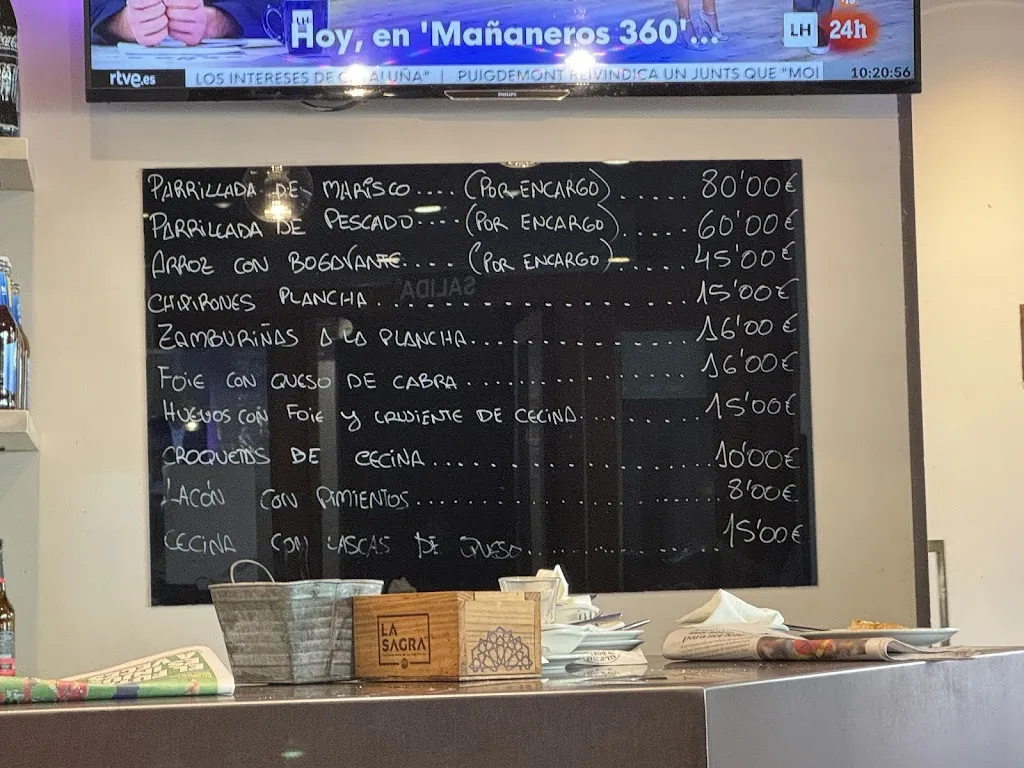 Hoy, en 'Mañaneros 360'...
LH 24h
rtve.es LOS INTERESES DE CATALUÑA" | PUIGDEMONT REIVINDICA UN JUNTS QUE "MOI 10:20:56
PHILIPS
PARRILLADA DE MARISCO .... (POR ENCARGO) ..... 80'00€
PARRILLADA DE PESCADO .... (POR ENCARGO) ..... 60'00€
ARROZ CON BOGAVANTE .... (POR ENCARGO) ..... 45'00€
SALIDA
CHIPIRONES PLANCHA ..... 15'00€
ZAMBURIÑAS A LA PLANCHA ..... 16'00€
FOIE CON QUESO DE CABRA ..... 16'00€
HUEVOS CON FOIE Y CRUJIENTE DE CECINA ..... 15'00€
CROQUETAS DE CECINA ..... 10'00€
LACÓN CON PIMIENTOS ..... 8'00€
CECINA CON LASCAS DE QUESO ..... 15'00€
LA SAGRA